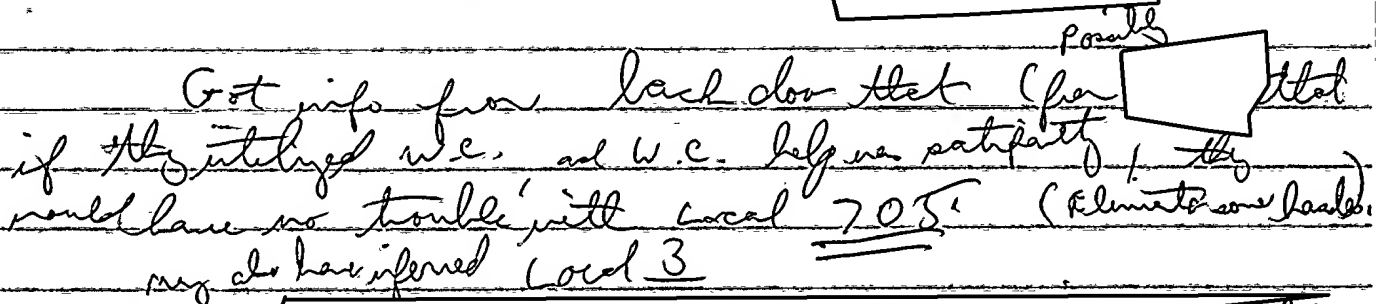 Possibly
Got info from back door that (from that
if they utilized W.C. and W.C. help was satisfactory, they
would have no trouble with Local 705. (Eliminate some hassles)
may also have inferred Local 3